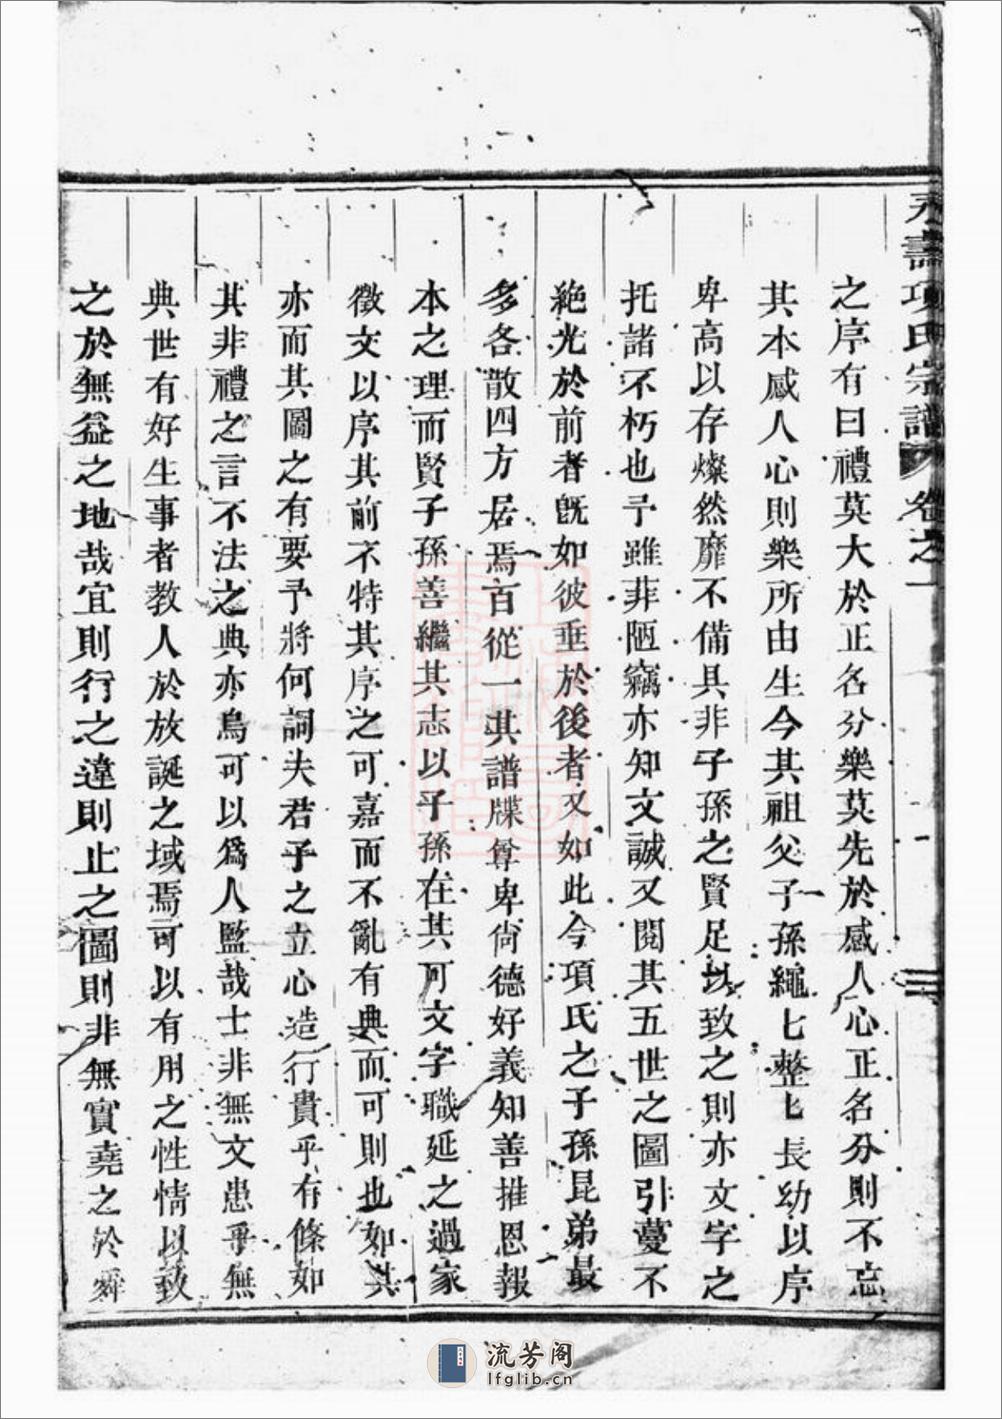 壽項氏宗譜 卷之一
之序有曰禮莫大於正名分樂莫先於感人心正名分則不忘
其本感人心則樂所由生今其祖父子孫繩七整七長幼以序
卑高以存燦然靡不備具非子孫之賢足以致之則亦文字之
托諸不朽也予雖菲陋竊亦知文誠又閱其五世之圖引蔓不
絶光於前者旣如彼垂於後者又如此今項氏之子孫昆弟最
多各散四方居焉百從一其譜牒尊卑尙德好義知善推恩報
本之理而賢子孫善繼其志以乎孫在其可文字職延之過家
徵文以序其前不特其序之可嘉而不亂有典而可則也如其
亦而其圖之有要予將何詞夫君子之立心造行貴乎有條如
其非禮之言不法之典亦烏可以爲人監哉士非無文患乎無
典世有好生事者教人於放誕之域焉可以有用之性情以致
之於無益之地哉宜則行之違則止之圖則非無實堯之於舜
流芳阁
lfglib.cn